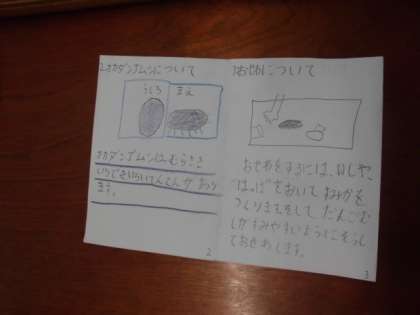 2.オカダンゴムシについて
うしろ
まえ
オカダンゴムシはむらさき
いろできいろいてんてんが あり
ます。
2
おせわについて
おせわをするには、いしや
はっぱをおいて すみかを
つくります。そして だんごむ
しがすみやすいようにそうし
ておせわします。
3